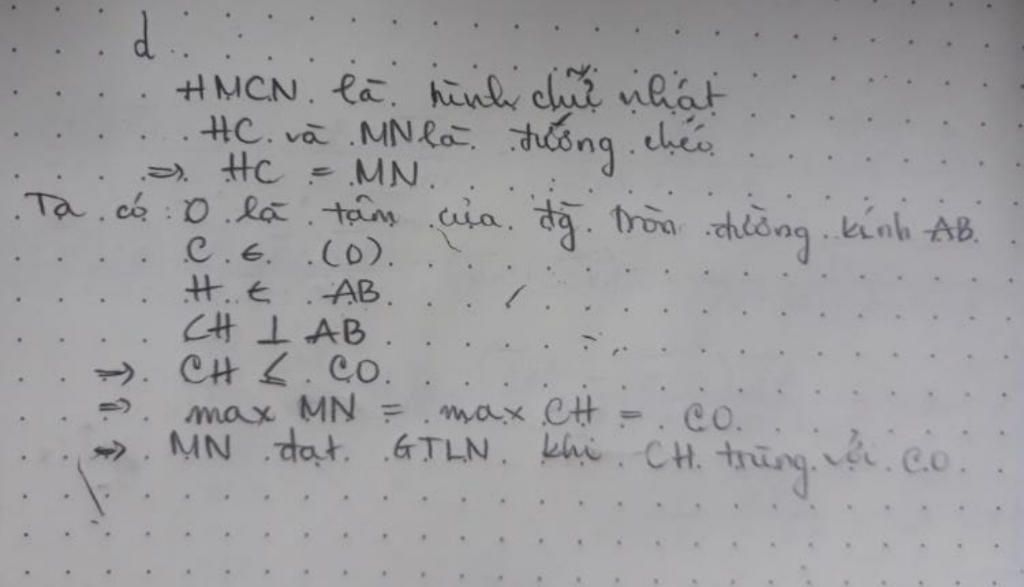 d
HMCN là hình chữ nhật
HC và MN là đường chéo
=> HC = MN.
Ta có: O là tâm của đg tròn đường kính AB.
C ∈ (O).
H ∈ AB.
CH ⊥ AB
=> CH ≤ CO.
=> max MN = max CH = CO.
=> MN đạt GTLN khi CH trùng với CO.